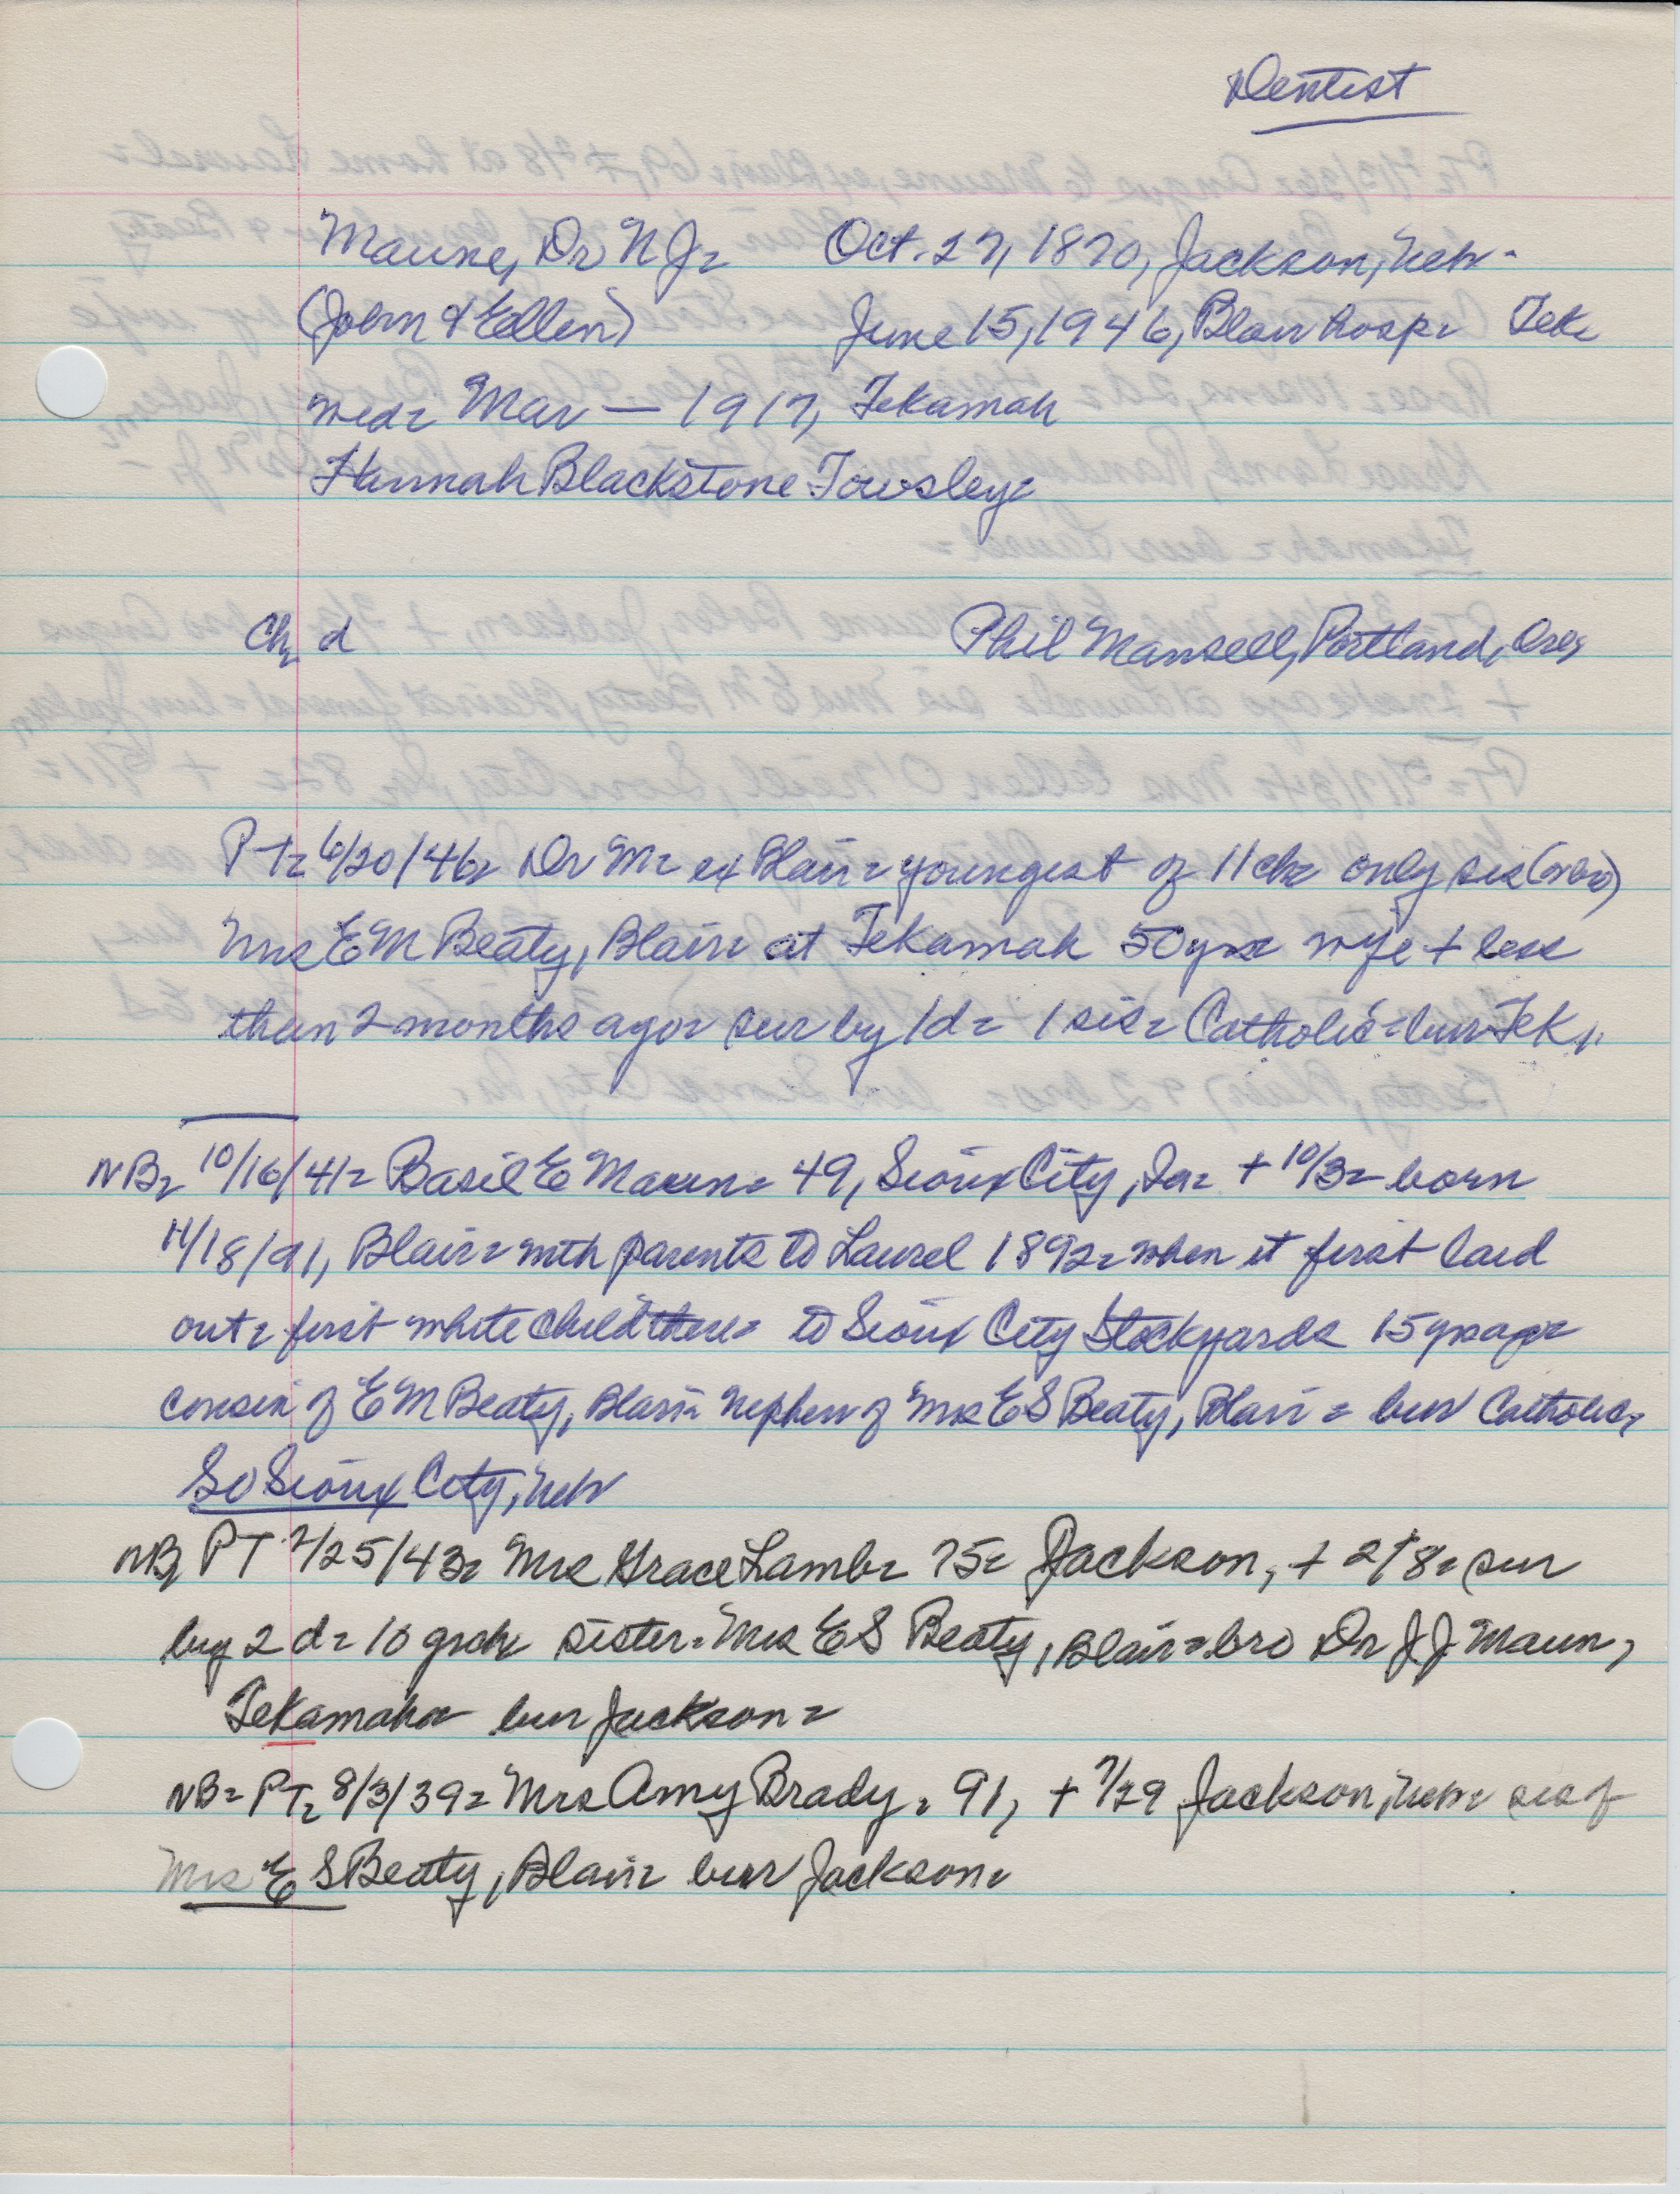 Dentist
Maune, Dr N J= Oct. 27, 1870, Jackson, Nebr-
(John & Ellen) June 15, 1946, Blair hosp= Tek=
wed= Mar — 1917, Tekamah
Hannah Blackstone Towsley=
Ch= d Phil Mansell, Portland, Ore,
PT= 6/20/46= Dr M= ex Blair= youngest of 11 ch= only sis
Mrs E M Beaty, Blair= at Tekamah 50 yrs= wife + less
than 2 months ago= sur by 1 d= 1 sis= Catholic= bur Tek
NB= 10/16/41= Basil E Maun= 49, Sioux City, Ia= + 10/3= born
11/18/91, Blair= with parents to Laurel 1892= when it first laid
out= first white child there= to Sioux City Stockyards 15 yrs ago=
cousin of E M Beaty, Blair= nephew of Mrs E S Beaty, Blair= bur Catholic,
So Sioux City, Nebr
NB, PT 2/25/43= Mrs Grace Lamb= 75= Jackson, + 2/8= sur
by 2 d= 10 grch sister= Mrs E S Beaty, Blair= bro Dr J J Maun,
Tekamah= bur Jackson=
NB= PT= 8/3/39= Mrs Amy Brady, 91, + 7/29 Jackson, Nebr= sis of
Mrs E S Beaty, Blair= bur Jackson=